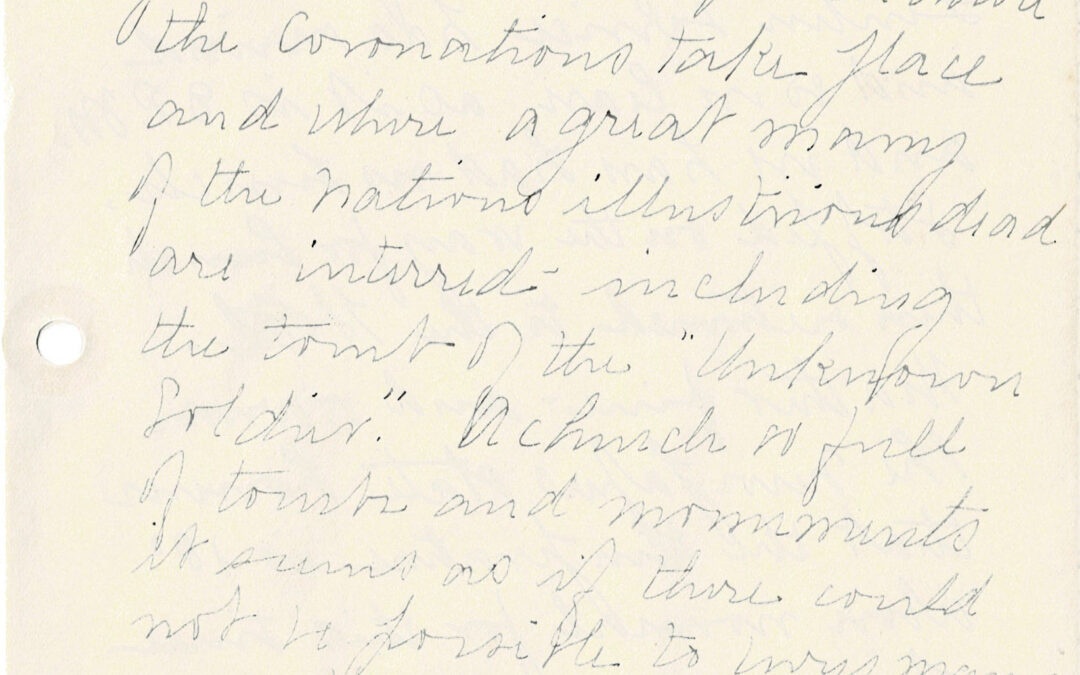 the Coronations take place
and where a great many
of the Nations illustrious dead
are interred - including
the tomb of the "Unknown
Soldier." A church so full
of tombs and monuments
it seems as if there could
not be possible to